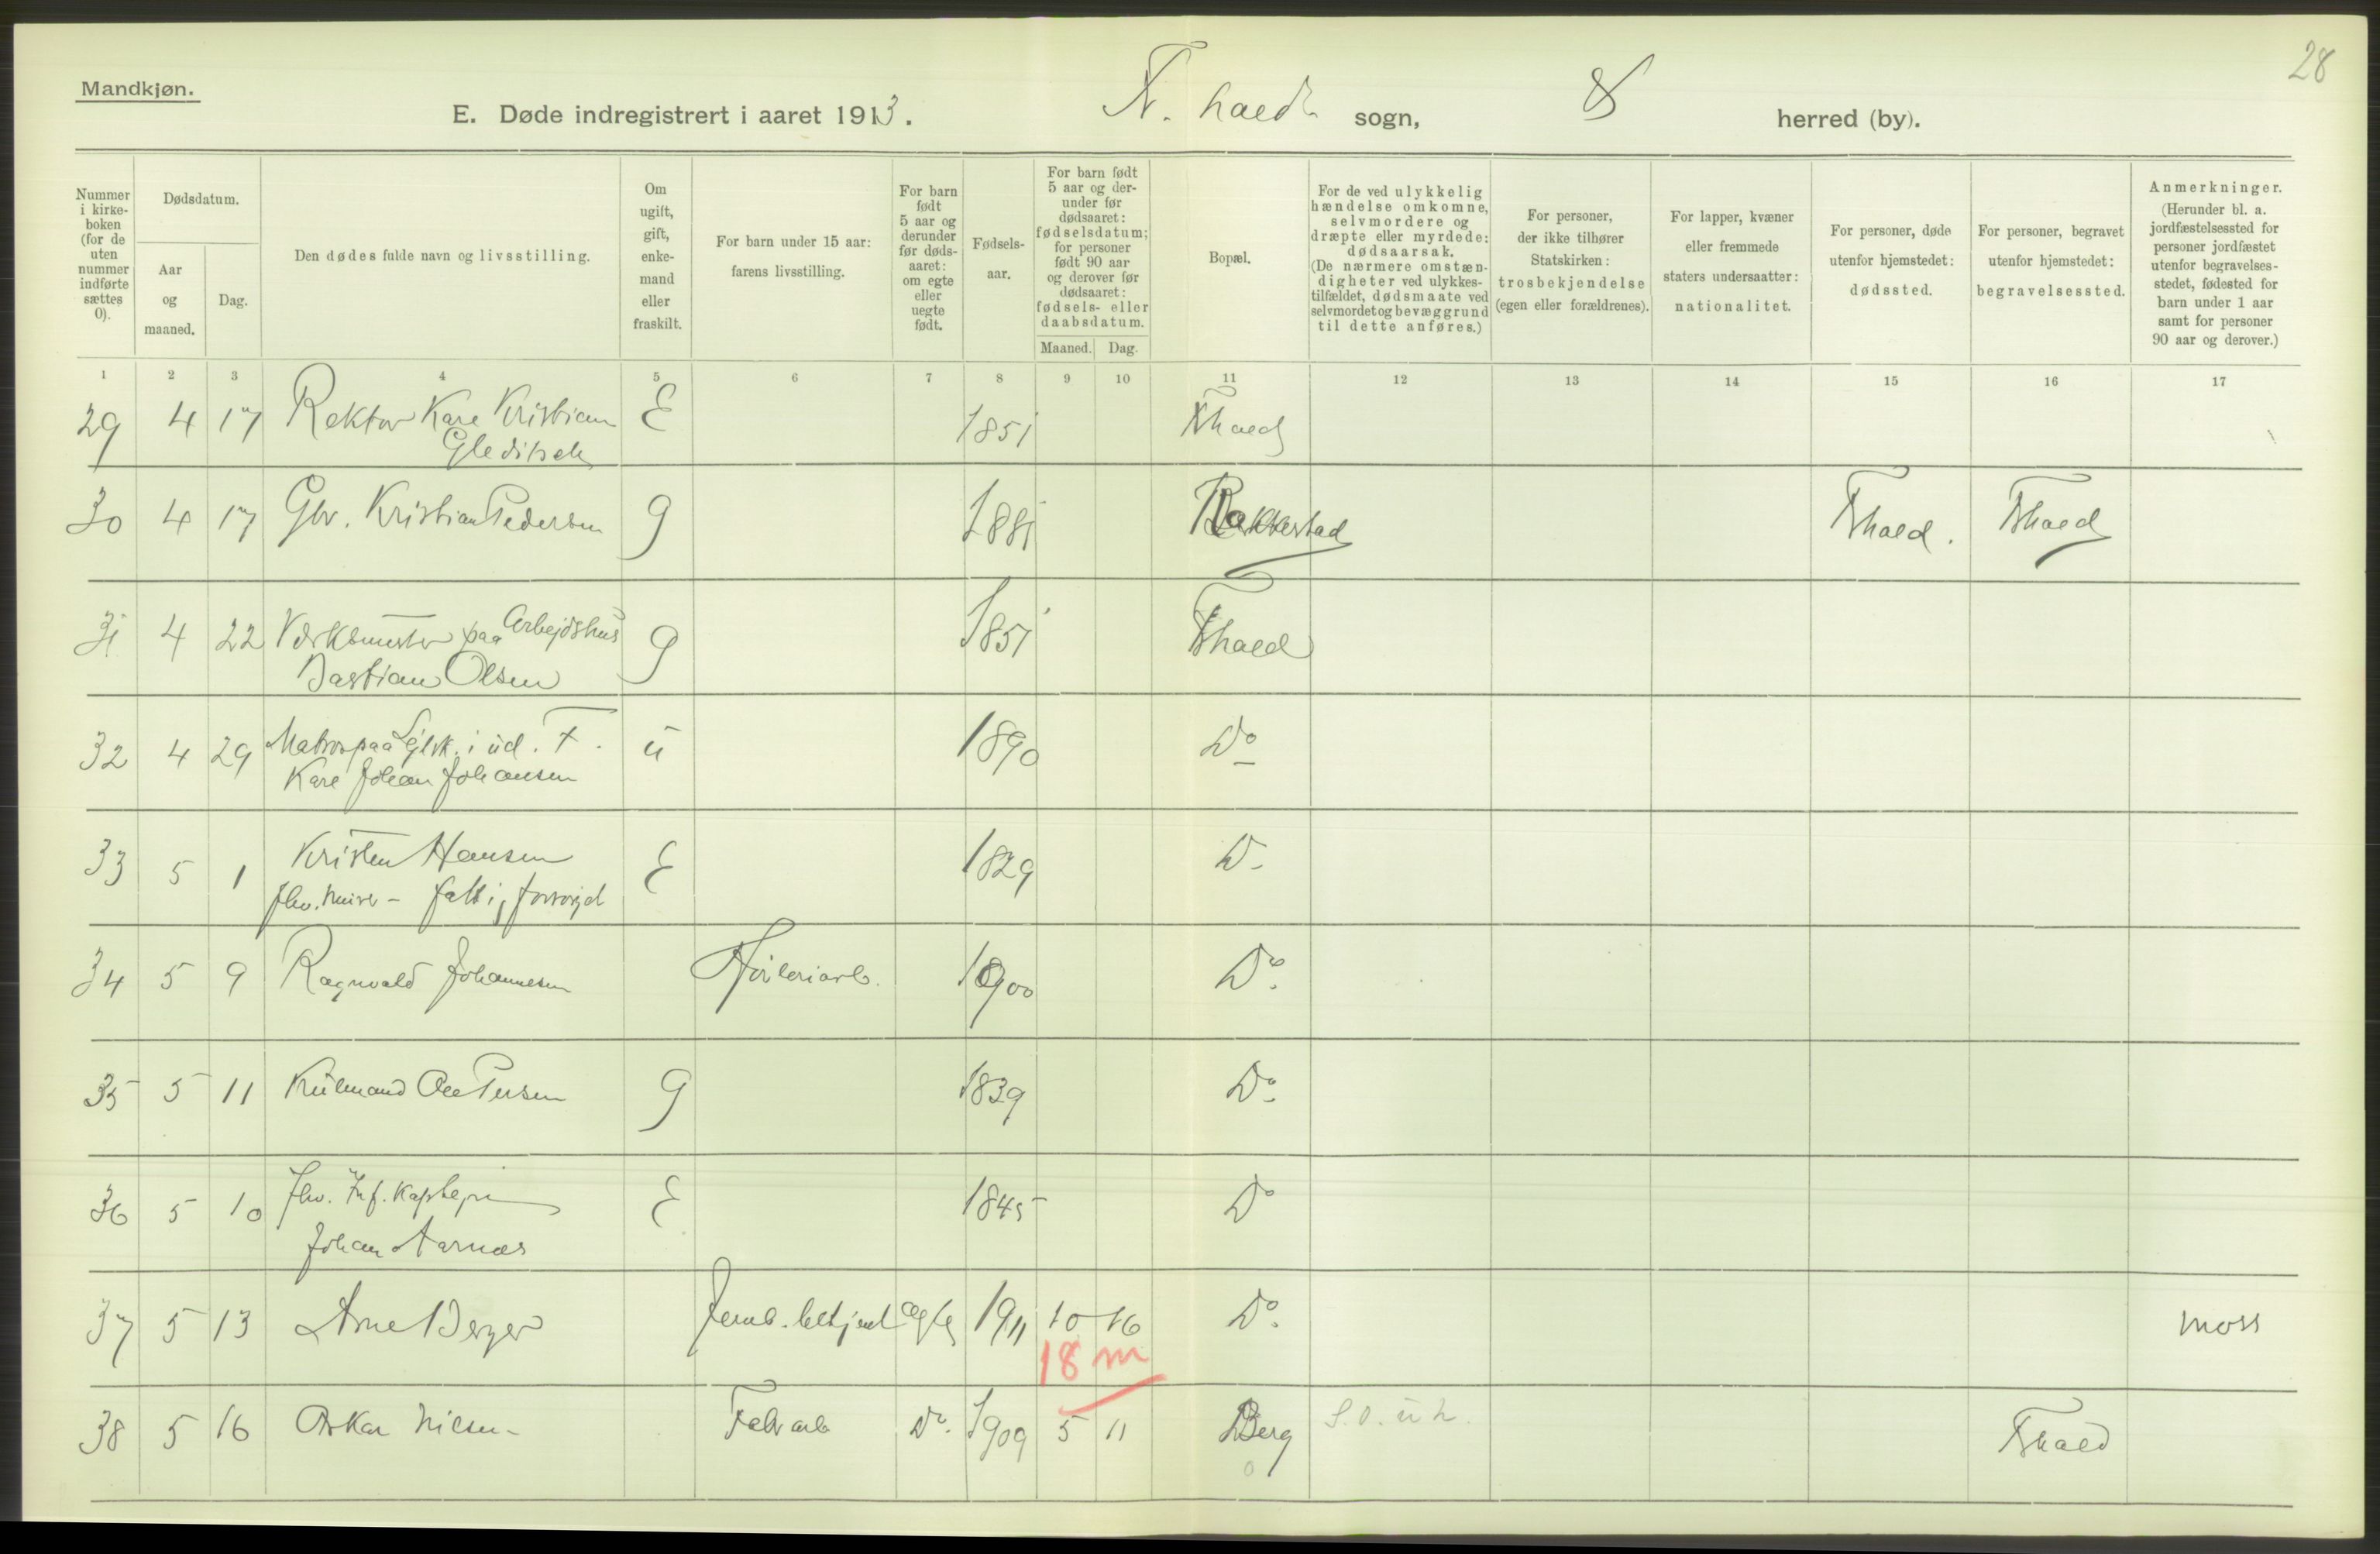 28
Mandkjøn.
E. Døde indregistrert i aaret 1913. F. hald sogn, herred (by).
Nummer i kirkeboken (for de uten nummer indførte sættes 0).
Dødsdatum.
Aar og maaned.
Dag.
Den dødes fulde navn og livsstilling.
Om ugift, gift, enkemand eller fraskilt.
For barn under 15 aar: farens livsstilling.
For barn født 5 aar og derunder før dødsaaret: om egte eller uegte født.
Fødselsaar.
For barn født 5 aar og derunder før dødsaaret: fødselsdatum; for personer født 90 aar og derover før dødsaaret: fødsels- eller daabsdatum.
Maaned.
Dag.
Bopæl.
For de ved ulykkelig hændelse omkomne, selvmordere og dræpte eller myrdede: dødsaarsak. (De nærmere omstændigheter ved ulykkestilfældet, dødsmaate ved selvmordet og bevæggrund til dette anføres.)
For personer, der ikke tilhører Statskirken: trosbekjendelse (egen eller forældrenes).
For lapper, kvæner eller fremmede staters undersaatter: nationalitet.
For personer, døde utenfor hjemstedet: dødssted.
For personer, begravet utenfor hjemstedet: begravelsessted.
Anmerkninger. (Herunder bl. a. jordfæstelsessted for personer jordfæstet utenfor begravelsesstedet, fødested for barn under 1 aar samt for personer 90 aar og derover.)
1 2 3 4 5 6 7 8 9 10 11 12 13 14 15 16 17
29 4 17 Rektor Karl Kristian E 1851 Fhald
Gleditsch
30 4 17 Gbr. Kristian Pedersen g 1881 Rakkestad Fhald. Fhald
31 4 22 Verksmester paa Arbejdshus g 1851 Fhald
Bastian Olsen
32 4 29 Matros paa Sejlsk. i ud. F. u 1890 Do
Karl Johan Johansen
33 5 1 Kristen Hansen E 1829 Do
fhv. murer - fattigforsørget
34 5 9 Ragnvald Johannesen Høvleriarb. 1900 Do.
35 5 11 Kulmand Ole Persen g 1839 Do.
36 5 10 fhv. Inf. Kaptejn E 1845 Do
Johan Aarnæs
37 5 13 Arne Berger Jernb. betjent ægte 1911 10 16 Do. Moss
18 m
38 5 16 Oskar Nilsen Fabr arb Do. 1909 5 11 Berg S.O. u h. Fhald
0